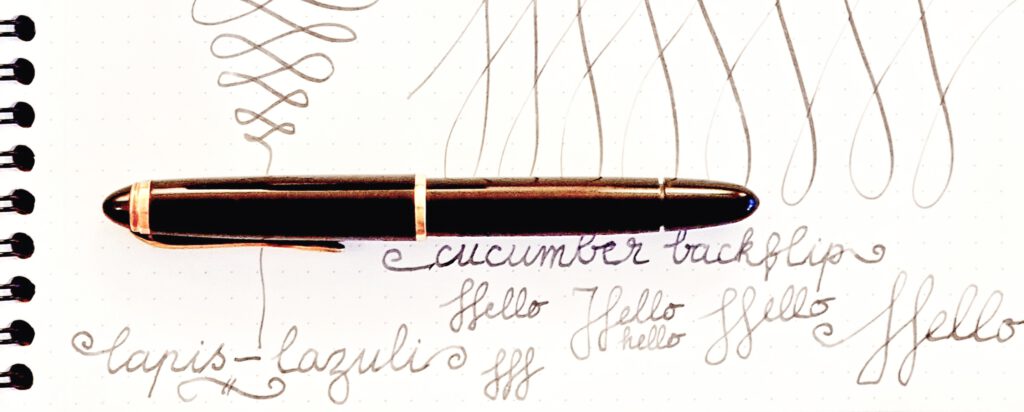 cucumber backflip
Hello Hello Hello Hello
hello
lapis-lazuli fff